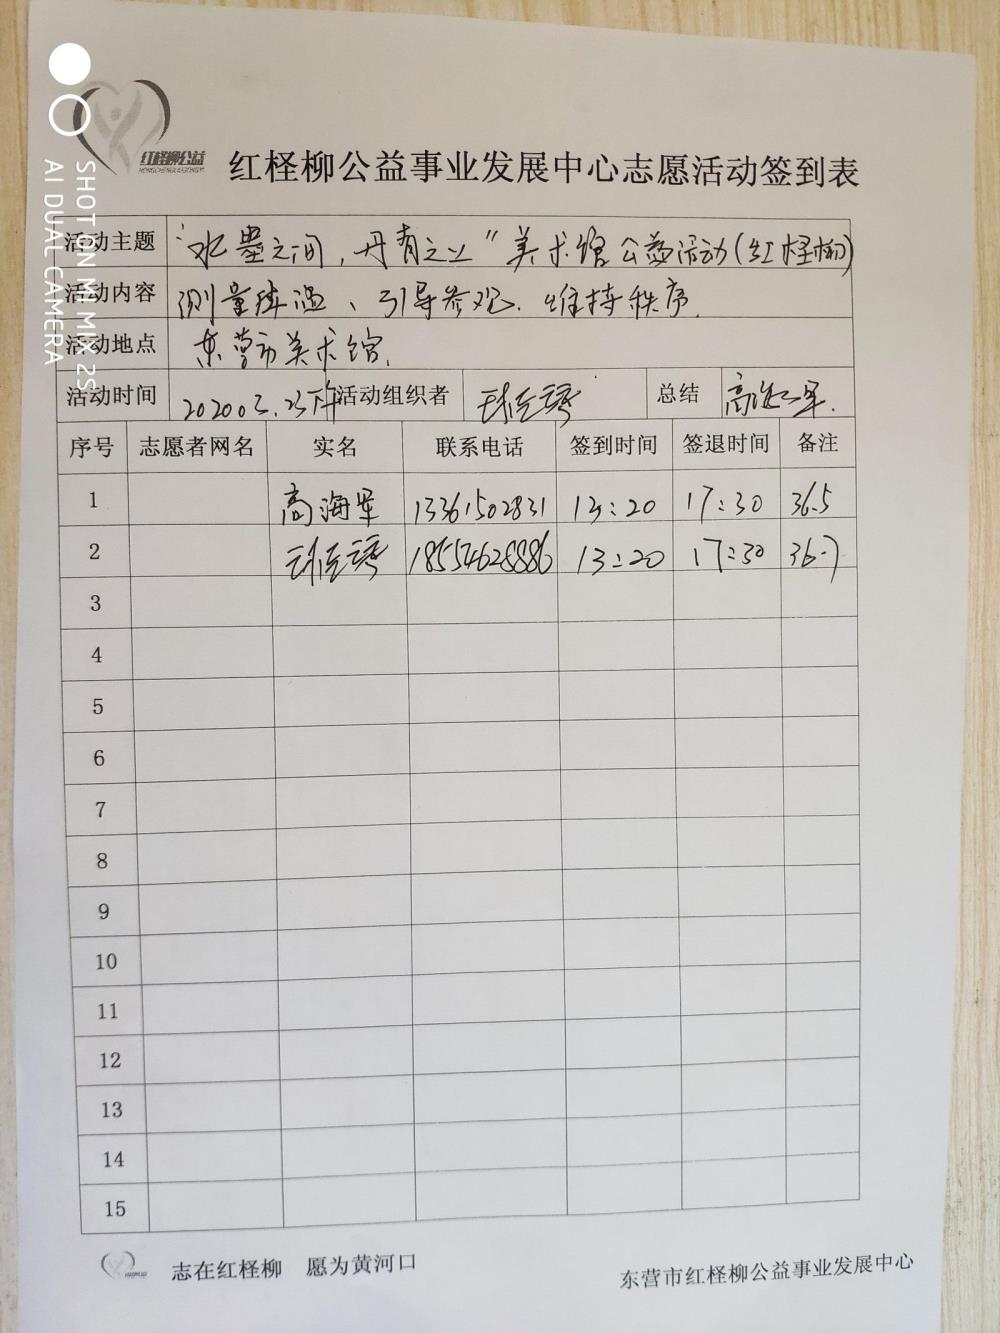 SHOT ON MI MIX 2S
AI DUAL CAMERA
红柽柳公益
红柽柳公益事业发展中心志愿活动签到表
活动主题 “水墨之间,丹青之上”美术馆公益活动(红柽柳)
活动内容 测量体温、引导参观、维持秩序.
活动地点 东营市美术馆.
活动时间 2020.03.23下午 活动组织者 总结 高海军.
序号 志愿者网名 实名 联系电话 签到时间 签退时间 备注
1 高海军 13361502831 13:20 17:30 36.5
2 18554628886 13:20 17:30 36.7
3
4
5
6
7
8
9
10
11
12
13
14
15
志在红柽柳 愿为黄河口
东营市红柽柳公益事业发展中心